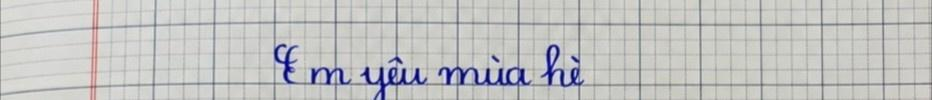 Em yêu mùa hè